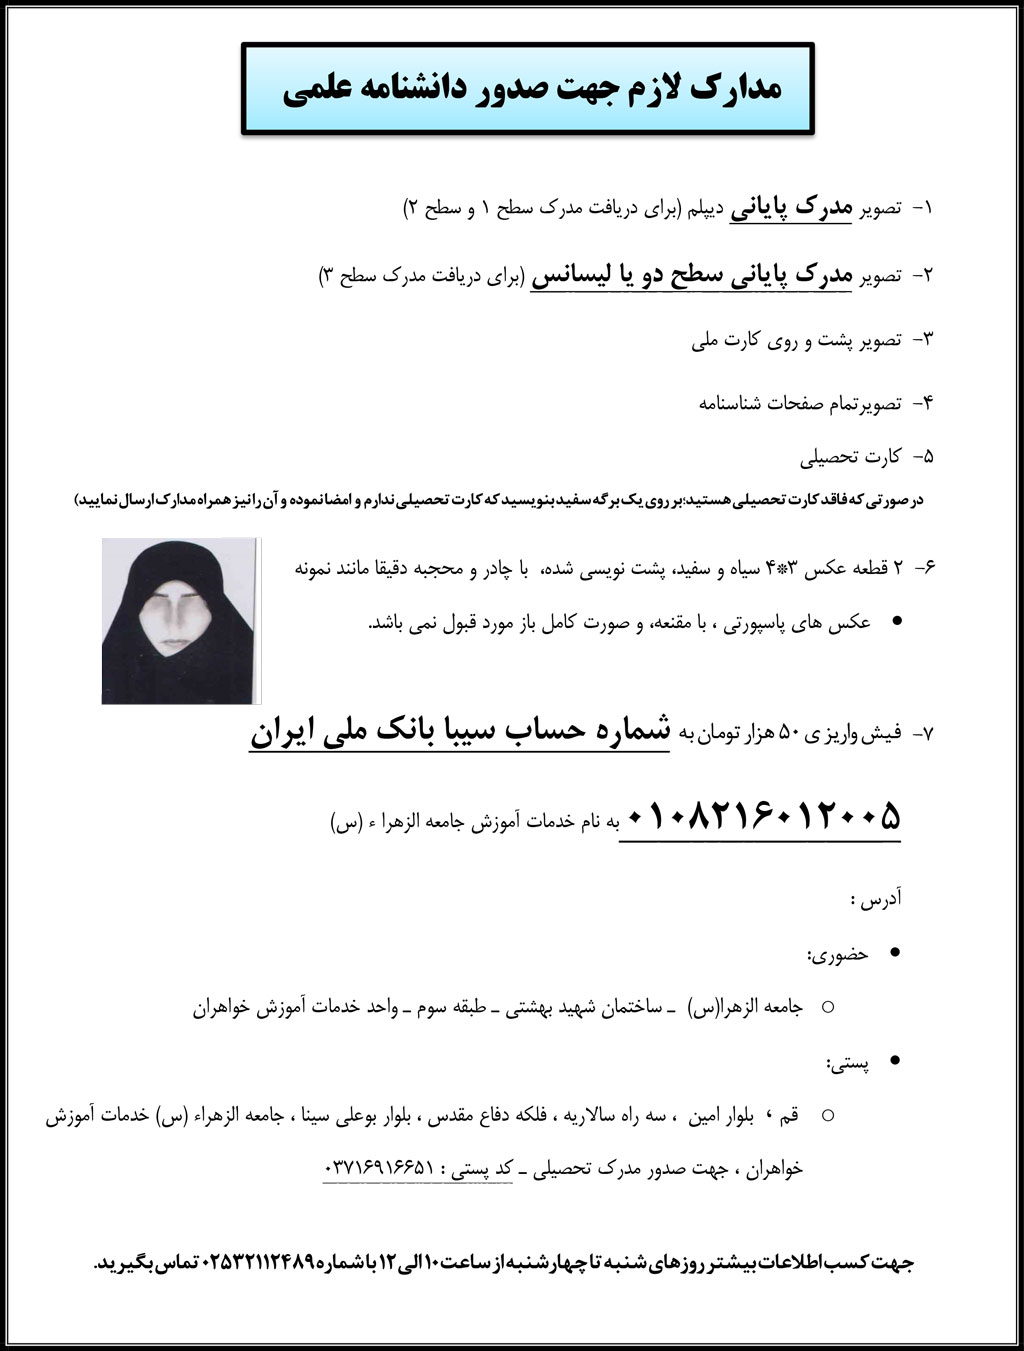 مدارک لازم جهت صدور دانشنامه علمی
۱- تصویر مدرک پایانی دیپلم (برای دریافت مدرک سطح ۱ و سطح ۲)
۲- تصویر مدرک پایانی سطح دو یا لیسانس (برای دریافت مدرک سطح ۳)
۳- تصویر پشت و روی کارت ملی
۴- تصویرتمام صفحات شناسنامه
۵- کارت تحصیلی
در صورتی که فاقد کارت تحصیلی هستید؛بر روی یک برگه سفید بنویسید که کارت تحصیلی ندارم و امضا نموده و آن را نیز همراه مدارک ارسال نمایید)
۶- ۲ قطعه عکس ۳*۴ سیاه و سفید، پشت نویسی شده، با چادر و محجبه دقیقا مانند نمونه
• عکس های پاسپورتی ، با مقنعه، و صورت کامل باز مورد قبول نمی باشد.
۷- فیش واریز ی ۵۰ هزار تومان به شماره حساب سیبا بانک ملی ایران
۰۱۰۸۲۱۶۰۱۲۰۰۵ به نام خدمات آموزش جامعه الزهرا ء (س)
آدرس :
• حضوری:
○ جامعه الزهرا(س) ـ ساختمان شهید بهشتی ـ طبقه سوم ـ واحد خدمات آموزش خواهران
• پستی:
○ قم ، بلوار امین ، سه راه سالاریه ، فلکه دفاع مقدس ، بلوار بوعلی سینا ، جامعه الزهراء (س) خدمات آموزش
خواهران ، جهت صدور مدرک تحصیلی ـ کد پستی : ۰۳۷۱۶۹۱۶۶۵۱
جهت کسب اطلاعات بیشتر روزهای شنبه تا چهارشنبه از ساعت ۱۰ الی ۱۲ با شماره ۰۲۵۳۲۱۱۲۴۸۹ تماس بگیرید.